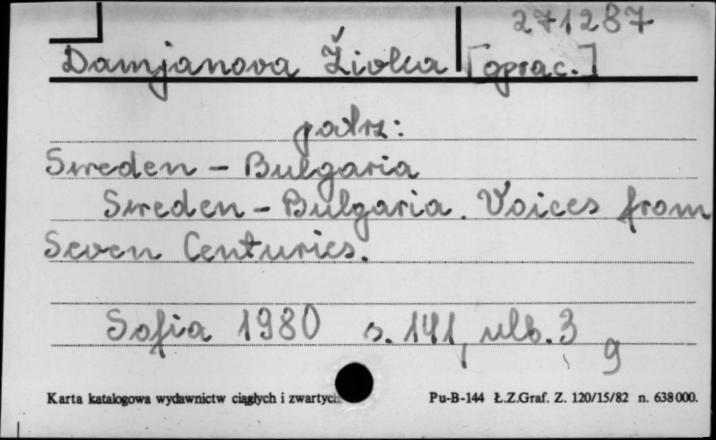 271287
Damjanova Živka [oprac.]
patrz:
Sweden - Bulgaria
Sweden - Bulgaria. Voices from
Seven Centuries.
Sofia 1980 s. 141, nlb. 3
g
Karta katalogowa wydawnictw ciągłych i zwartych Pu-B-144 Ł.Z.Graf. Z. 120/15/82 n. 638000.